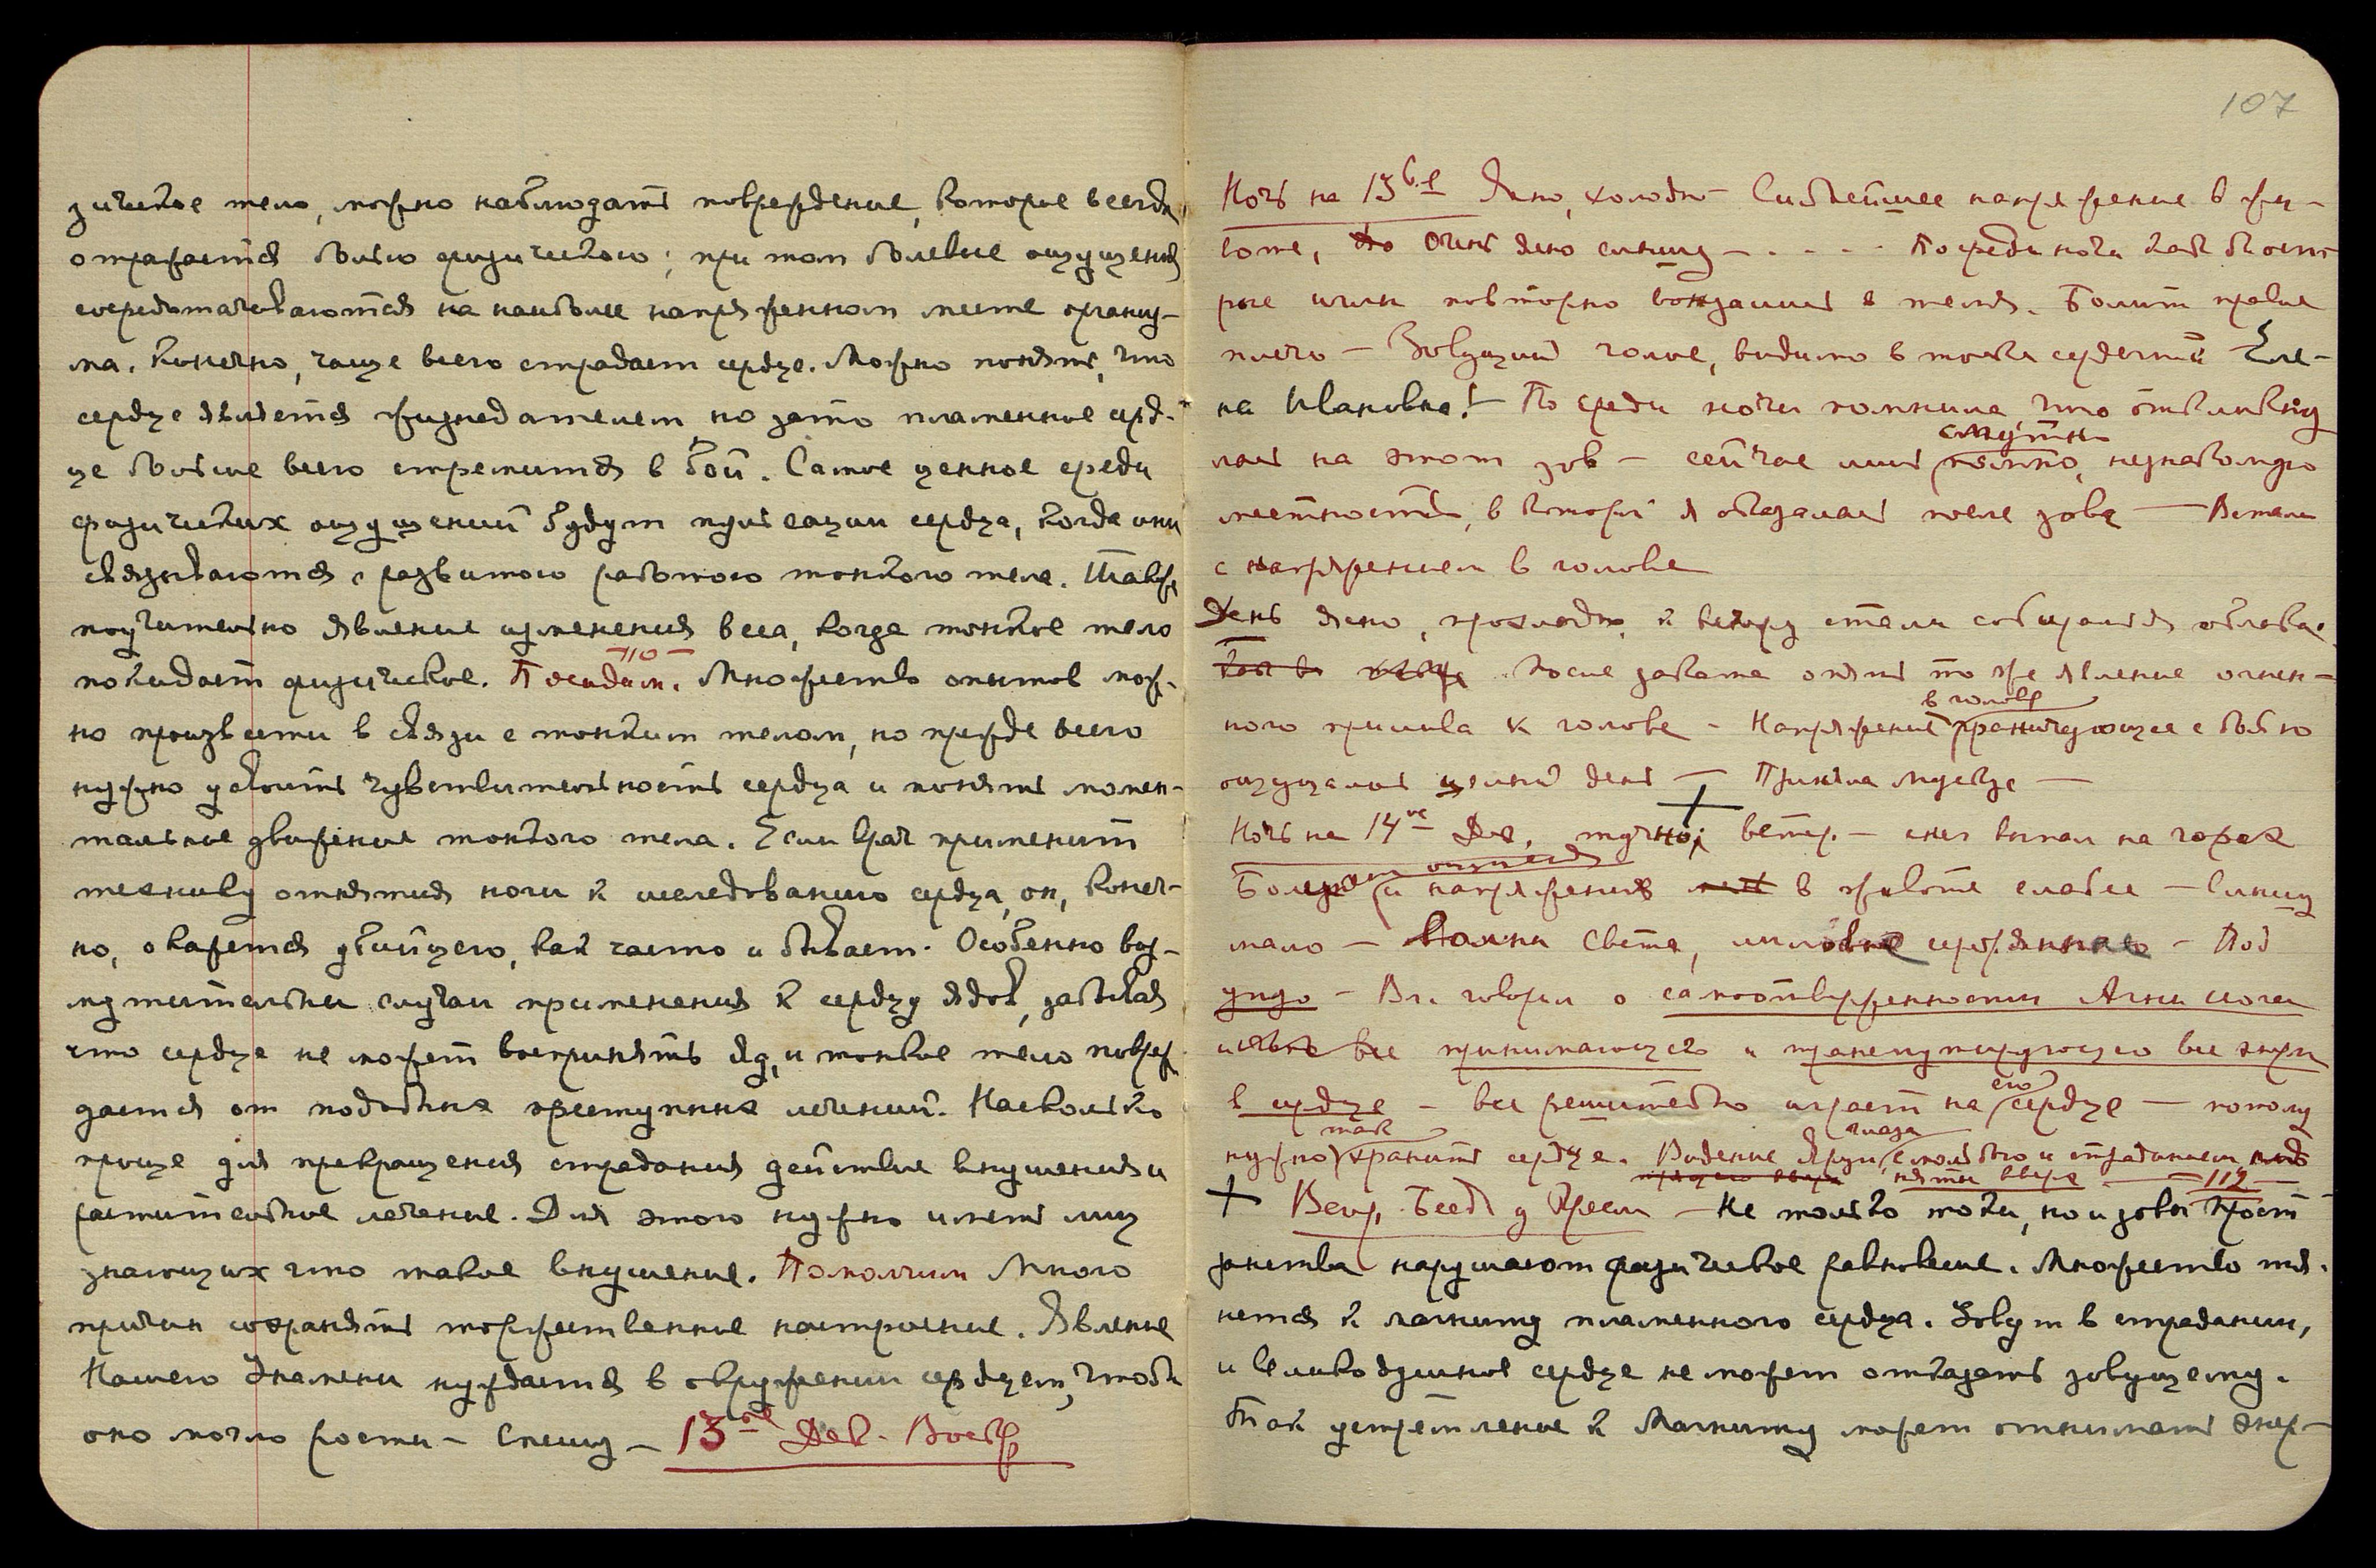 зическое тело, можно наблюдать повреждение, которое всегда
отражается болью физическою; при том болевые ощущения
сосредотачиваются на наиболее напряженном месте организ-
ма. Конечно, чаще всего страдает сердце. Можно понять, что
сердце является жизнедателем, но зато пламенное серд-
це больше всего стремится в бой. Самое ценное среди
физических ощущений будут пульсации сердца, когда они
связываются с развитою работою тонкого тела. Также
поучительно явление изменения веса, когда тонкое тело
—110—
покидает физическое. Посидим. Множество опытов мож-
но произвести в связи с тонким телом, но прежде всего
нужно усвоить чувствительность сердца и понять момен-
тальное движение тонкого тела. Если врач применит
технику отнятия ноги к исследованию сердца, он, конеч-
но, окажется убийцею, как часто и бывает. Особенно воз-
мутительны случаи применения к сердцу ядов, забывая
что сердце не может воспринять яд, и тонкое тело повреж
дается от подобных преступных лечений. Насколько
проще для прекращения страдания действие внушения и
растительное лечение. Для этого нужно иметь лиц
знающих что такое внушение. Помолчим Много
причин сохранять торжественное настроение. Явление
Нашего Знамени нуждается в окружении сердцем, чтобы
оно могло расти – Спешу – 13ое Дек. Воскр
107
Ночь на 13ое Ясно, холодно – Сильнейшее напряжение в жи-
воте, Но очень ясно слышу – . - - - Посреди ночи как бы ост-
рые иглы повторно вонзались в темя. Болит правое
плечо – Зовущий голос, видимо в тоске сердечной Еле-
на Ивановна! – По среди ночи помнила, что откликну
смутно
лась на этот зов – сейчас лишь помню, незнакомую
местность, в которой я оказалась после зова — Встала
с напряжением в голове
День ясно, прохладно, к вечеру стали собираться облака.
После заката опять то же явление огнен-
в голове
ного прилива к голове – Напряжение граничующее с болью
ощущалось целый день — Приняла мускус —
Ночь на 14ое Дек, тучно; ветер – снег выпал на горах
Боли и напряжения в животе слабее – Слышу
мало – Волны Света, – Под
утро – Вл. говорил о самоотверженности Агни йоги
все принимающего и трансмутирующего все энергии
его
в сердце – все решительно играет на сердце — потому
так глаза
нужно хранить сердце. Видение с мольбою и страданием
—112—
+ Веч. Беседа у Кресл – Не только токи, но и зовы прост
ранства нарушают физическое равновесие. Множество тя-
нется к магниту пламенного сердца. Зовут в страдании,
и великодушное сердце не может отказать зовущему.
Так устремление к Магниту может отнимать энер-